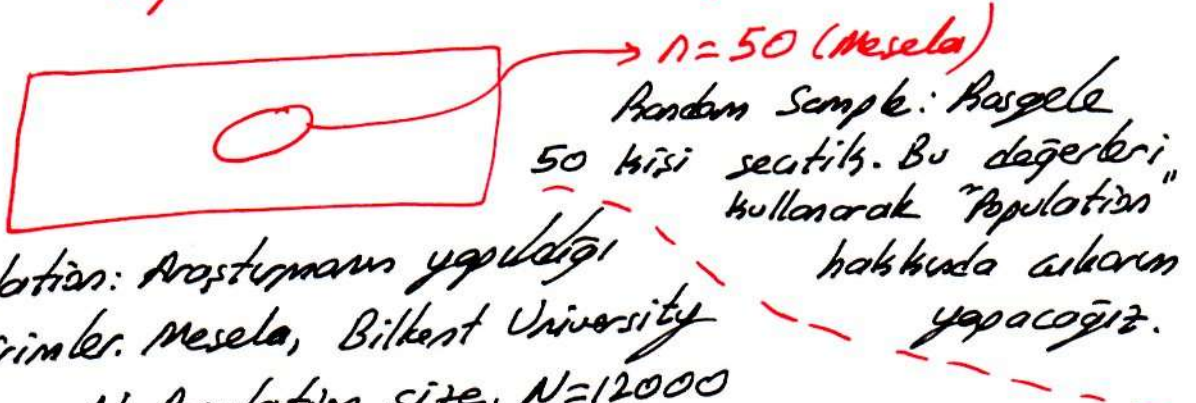 n=50 (Mesela)
Random Sample: Rasgele
50 kişi seçtik. Bu değerleri
kullanarak "Population"
hakkında çıkarım
yapacağız.
lation: Araştırmanın yapıldığı
rimler. Mesela, Bilkent University
N: Population size, N=12000